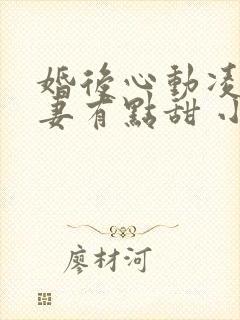 婚後心動凌
妻有點甜小
廖材河